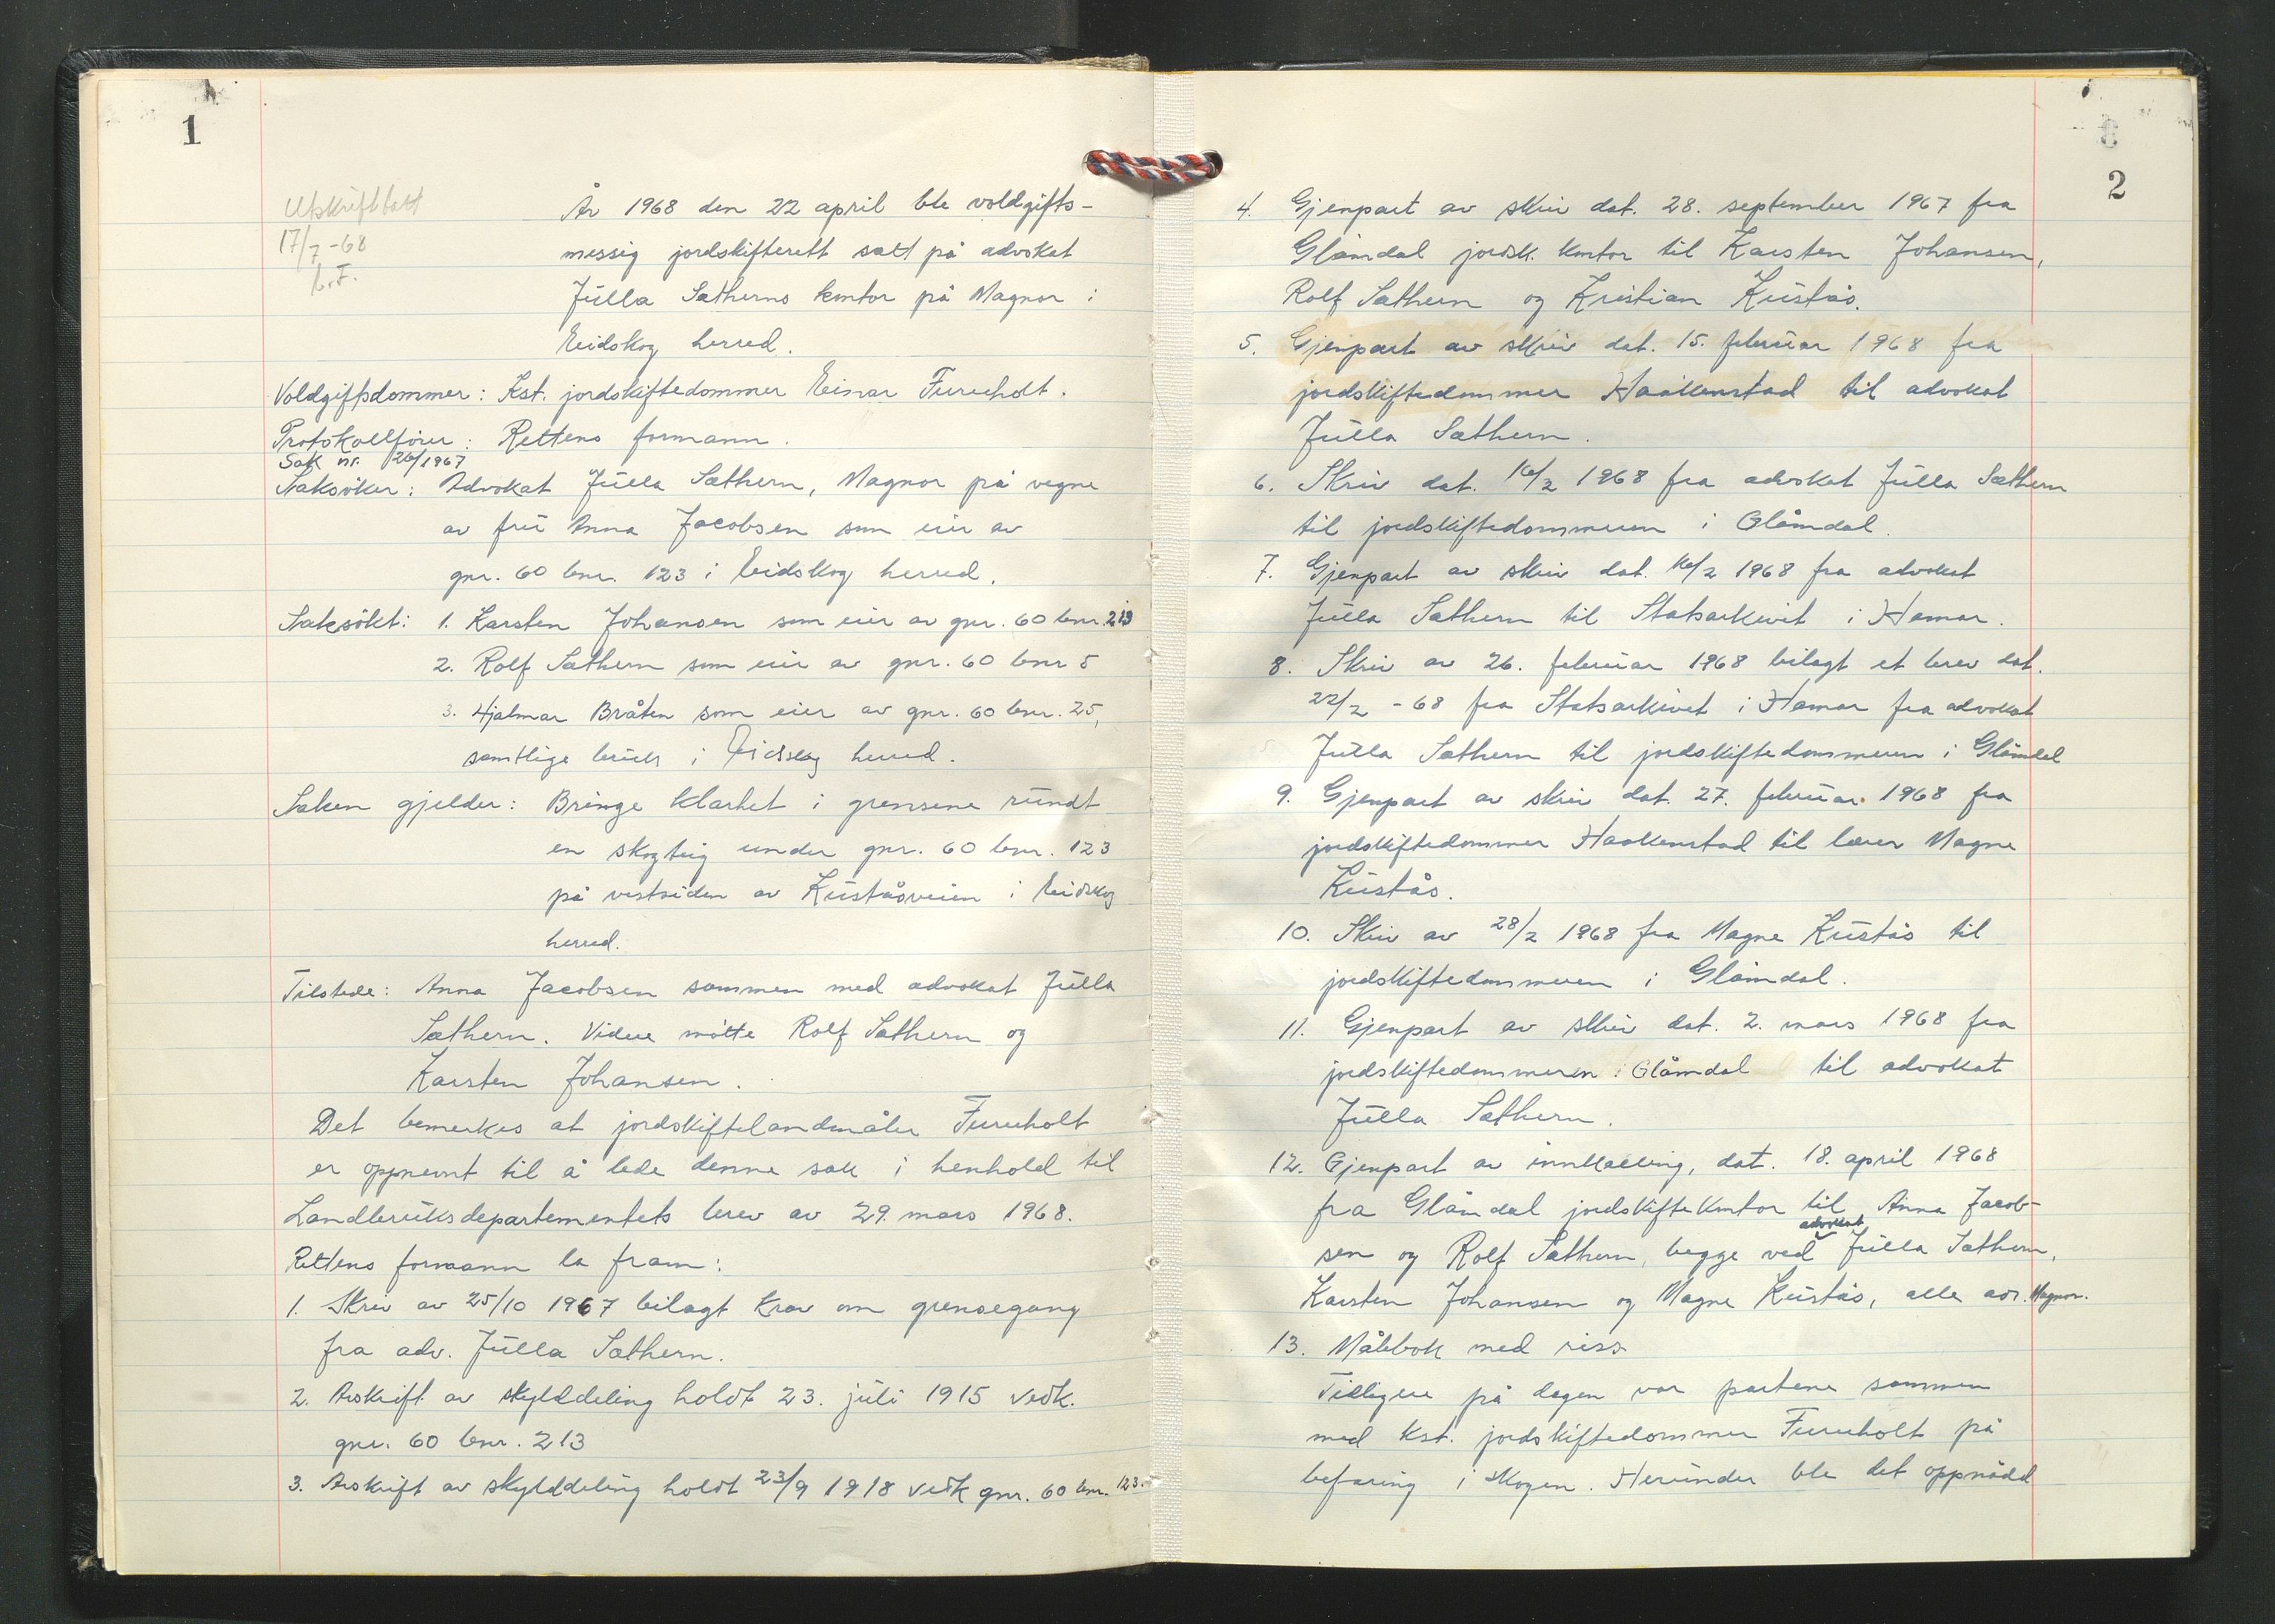 1
Utskrift tatt
17/7-68
År 1968 den 22 april ble voldgifts-
messig jordskifterett satt på advokat
Julla Sætherns kontor på Magnor i
Eidskog herred.
Voldgiftsdommer: Kst. jordskiftedommer Einar Furuholt.
Protokollfører: Rettens formann.
Sak nr. 26/1967
Saksöker: Advokat Julla Sæthern, Magnor på vegne
av fru Anna Jacobsen som eier av
gnr. 60 bnr. 123 i Eidskog herred.
Saksökt: 1. Karsten Johansen som eier av gnr. 60 bnr. 213
2. Rolf Sæthern som eier av gnr. 60 bnr 5
3. Hjalmar Bråten som eier av gnr. 60 bnr. 25,
samtlige bruk i Eidskog herred.
Saken gjelder: Bringe klarhet i grensene rundt
en skogteig under gnr. 60 bnr. 123
på vestsiden av Kuståsveien i Eidskog
herred.
Tilstede: Anna Jacobsen sammen med advokat Julla
Sæthern. Videre mötte Rolf Sæthern og
Karsten Johansen.
Det bemerkes at jordskiftelandmåler Furuholt
er oppnevnt til å lede denne sak i henhold til
Landbruksdepartementets brev av 29. mars 1968.
Rettens formann la fram:
1. Skriv av 25/10 1967 bilagt krav om grensegang
fra adv. Julla Sæthern.
2. Avskrift av skylddeling holdt 23. juli 1915 vedk.
gnr. 60 bnr. 213
3. Avskrift av skylddeling holdt 23/9 1918 vedk gnr. 60 bnr. 123.
2
4. Gjenpart av skriv dat. 28. september 1967 fra
Glåmdal jordsk. kontor til Karsten Johansen,
Rolf Sæthern og Kristian Kustås.
5. Gjenpart av skriv dat. 15. februar 1968 fra
jordskiftedommer Haakenstad til advokat
Julla Sæthern.
6. Skriv dat. 16/2 1968 fra advokat Julla Sæthern
til jordskiftedommeren i Glåmdal.
7. Gjenpart av skriv dat. 16/2 1968 fra advokat
Julla Sæthern til Statsarkivet i Hamar.
8. Skriv av 26. februar 1968 bilagt et brev dat.
22/2 - 68 fra Statsarkivet i Hamar fra advokat
Julla Sæthern til jordskiftedommeren i Glåmdal
9. Gjenpart av skriv dat. 27. februar 1968 fra
jordskiftedommer Haakenstad til lærer Magne
Kustås.
10. Skriv av 28/2 1968 fra Magne Kustås til
jordskiftedommeren i Glåmdal.
11. Gjenpart av skriv dat. 2. mars 1968 fra
jordskiftedommeren i Glåmdal til advokat
Julla Sæthern.
12. Gjenpart av innkalling, dat. 18. april 1968
fra Glåmdal jordskiftekontor til Anna Jacob-
sen og Rolf Sæthern, begge ved advokat Julla Sæthern,
Karsten Johansen og Magne Kustås, alle adr. Magnor.
13. Målebok med riss
Tidligere på dagen var partene sammen
med kst. jordskiftedommer Furuholt på
befaring i skogen. Herunder ble det oppnådd